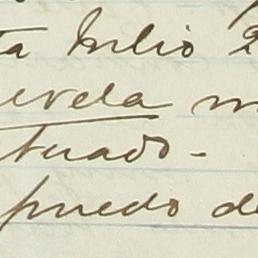 ta Julio 2
evela m
tuado-
puedo de